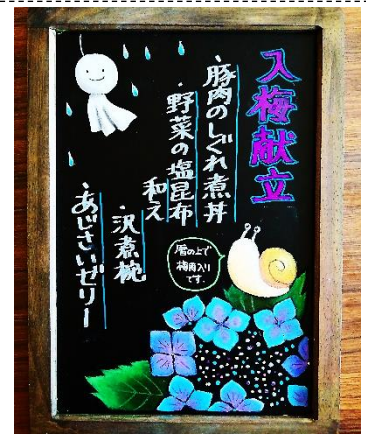 入梅献立
・豚肉のしぐれ煮丼
・野菜の塩昆布
和え
・沢煮椀
・あじさいゼリー
暦の上で
梅雨入り
です。